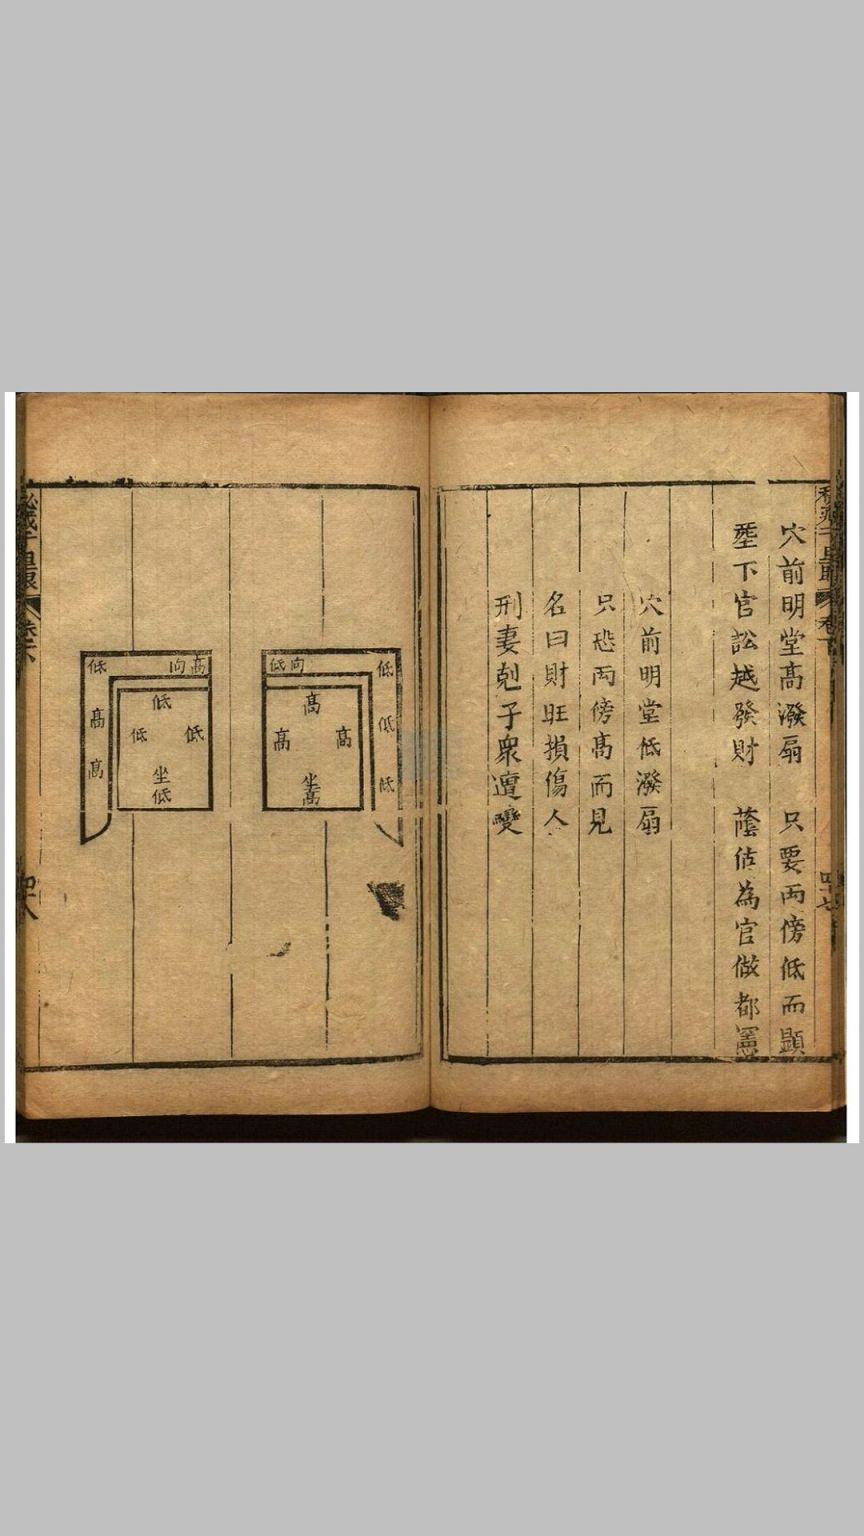 穴前明堂高潑扇　只要両傍低而顕
塟下官訟越發財　蔭佑為官做都憲
穴前明堂低潑扇
只恐両傍高而見
名曰財旺損傷人
刑妻剋子衆遭變
四十七
低向　低
低
低
高
高　高
坐高
高向　低
高
高
低
低　低
坐低
四十八